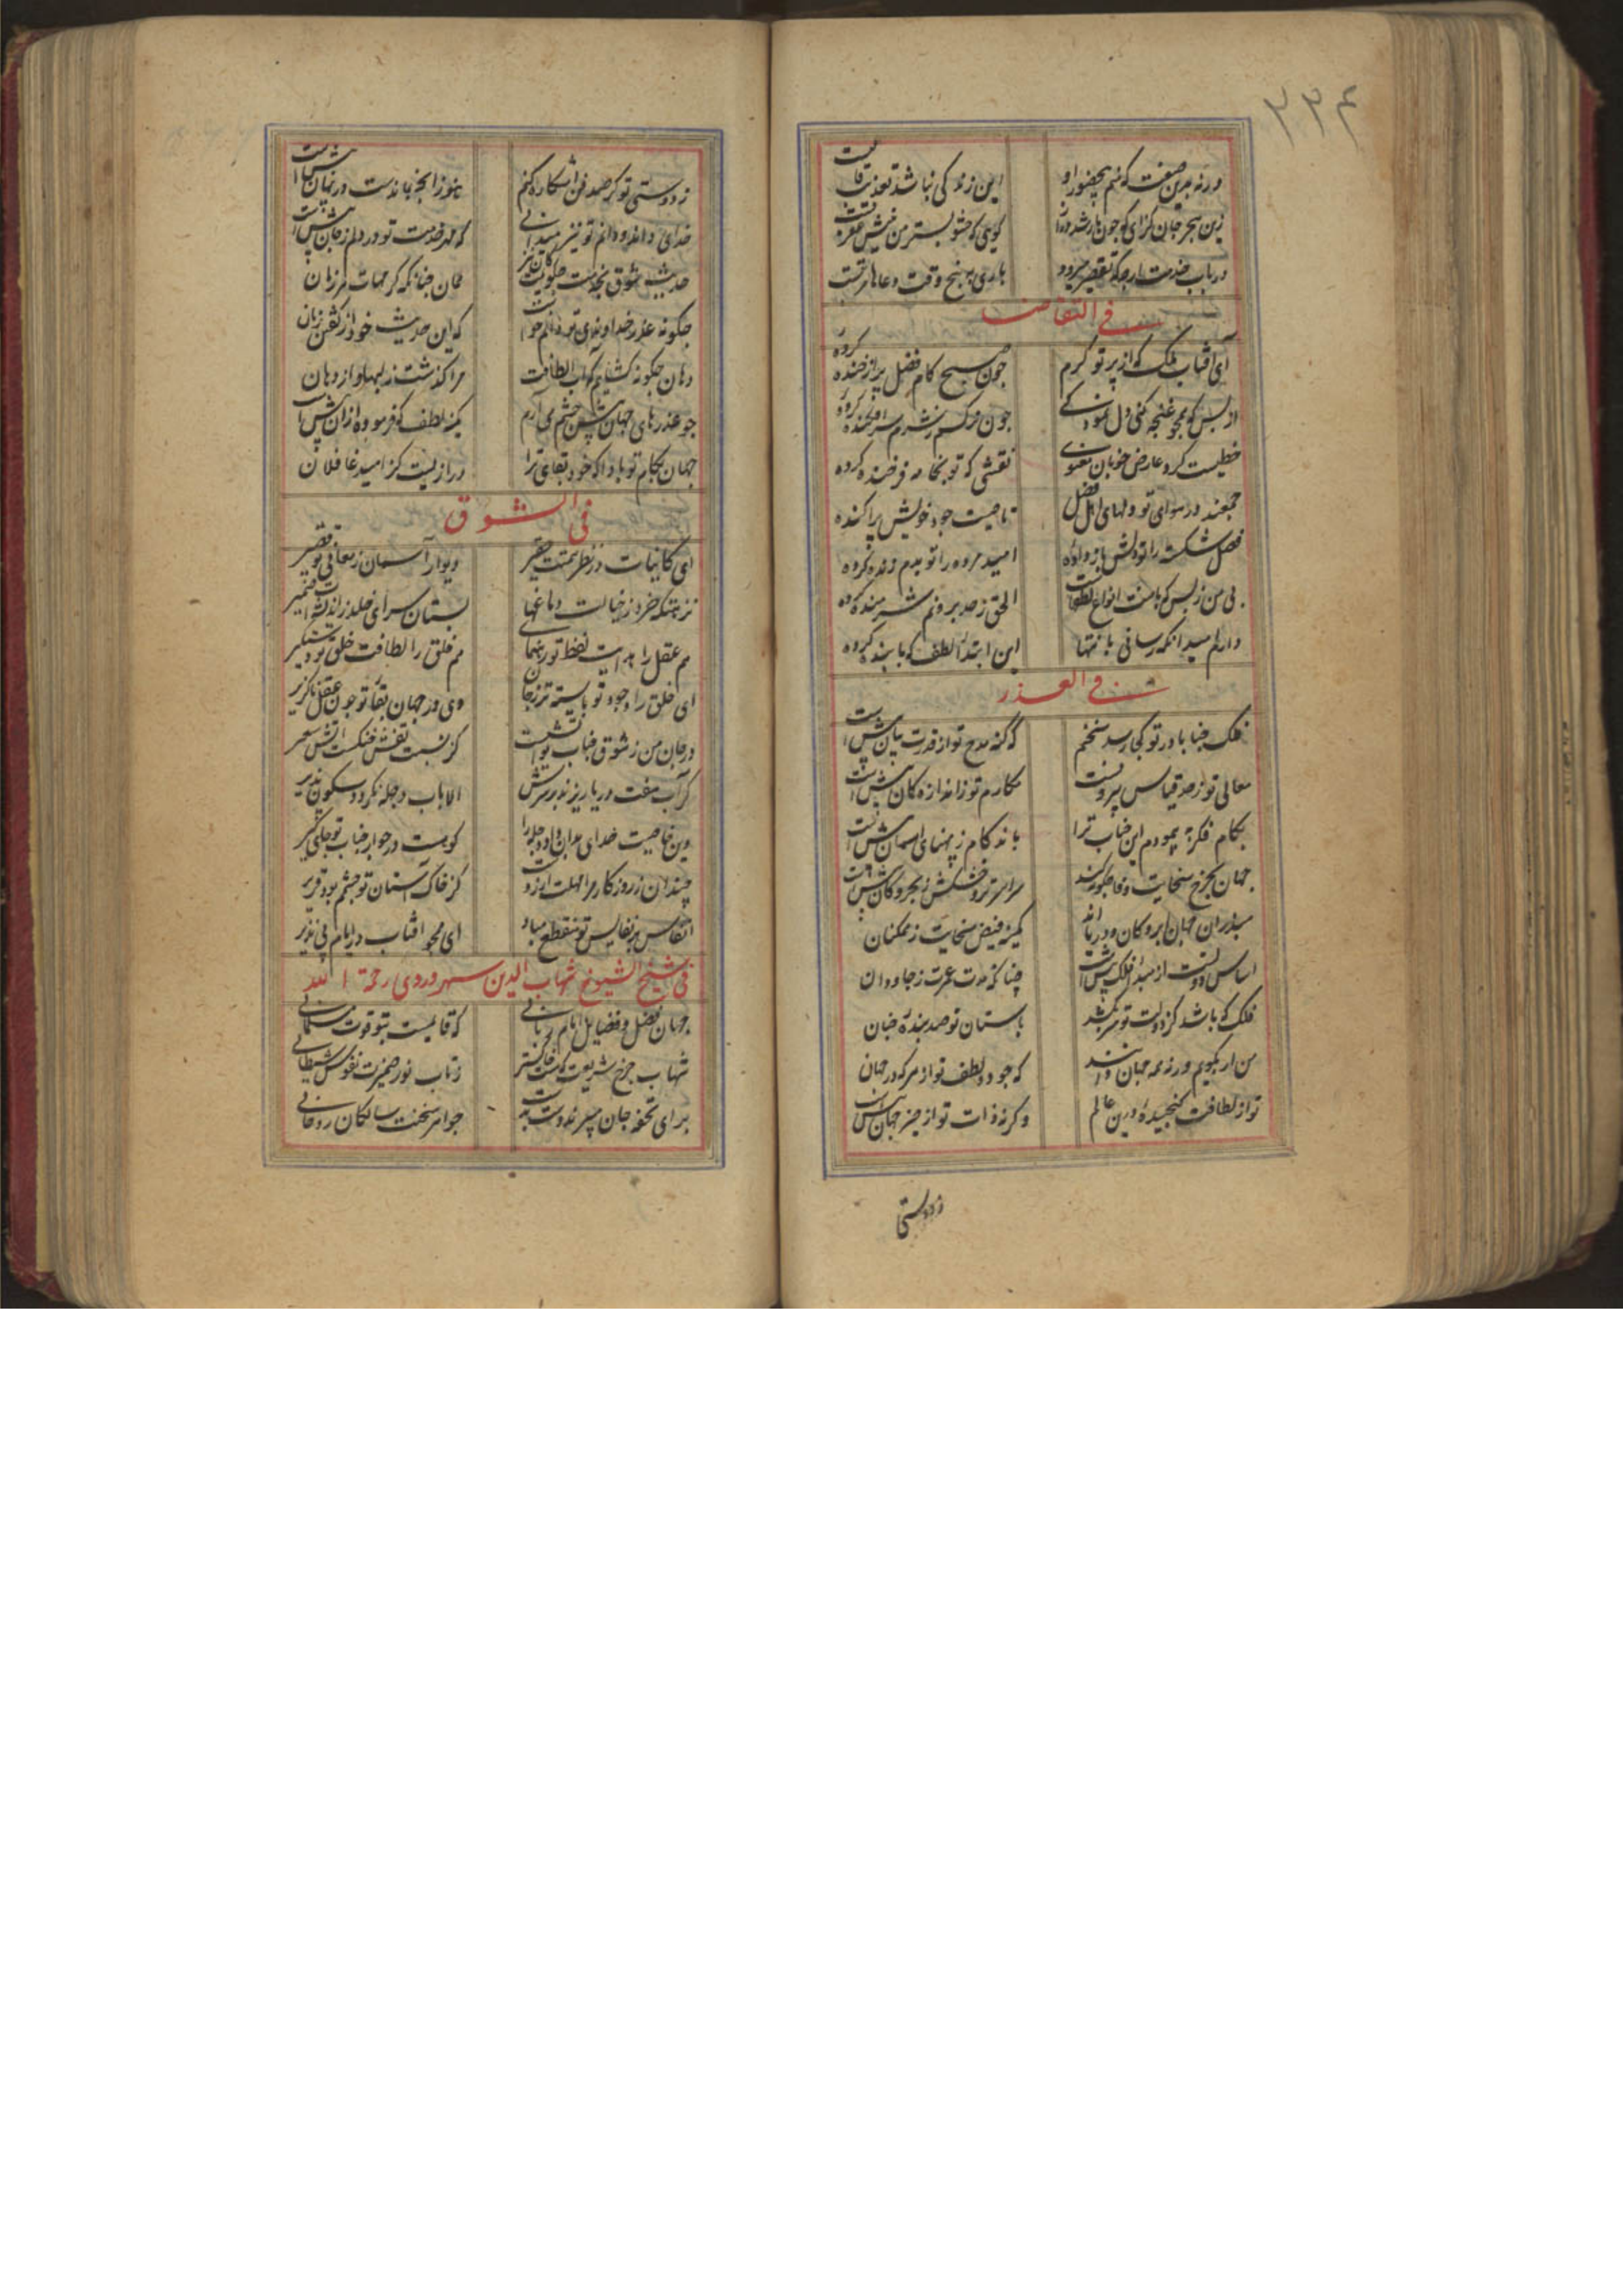 ۲۳۴
ورنه بدین صفت که منم بیحضور او این زندگی نباشد تعذیب قالبست
زین هجر جان گزای که چون مار شد دراز گویی که حشو بستر من نیش عقربست
در باب خدمت ارچه که تقصیر میرود باری به پنج وقت دعاها مرتبست
فی التقاضا
ای آفتاب ملک که از پرتو کرم چون صبح کام فضل پر از خنده کرده
از بس که همچو غنچه کنی دل نمودگی چون نرگسم ز شرم سرافکنده کرده
خطیست گرد عارض خوبان معنوی نقشی که تو بخامه فرخنده کرده
جمعند در هوای تو دلهای اهل فضل تا صیت جود خویش پراکنده کرده
فضل شکسته را تو دلش باز داده امید مرده را تو بدم زنده کرده
بی من ز بس که با منت انواع لطفهاست الحق ز حد برونم شرمنده کرده
دارم امید آنکه رسانی بانتها این ابتدا لطف که با بنده کرده
فی العذر
فلک جنابا در تو کجا رسد سخنم که کنه مدح تو از قدرت بیان بیش است
معالی تو ز حد قیاس بیرونست مکارم تو ز اندازه کان بیش است
بکام فکرة پیمودم این جناب ترا باند کام ز پهنای آسمان بیش است
جهان بخرج سخایت وفا چگونه کند سراسر تر و خشکش ز بحر و کان بیش است
بپذیران جهان ابر و کان و دریااند کمینه فیض سخایت ز ممکنان
اساس دولتت از مبدا فلک پیش است چنانکه مدت عمرت ز جاودان
فلک که باشد کز دولت تو سر بکشد بآستان تو صد بنده چنان
من ار بگویم ورنه همه جهان دانند که جود و لطف تو از هر که در جهان
تو از لطافت گنجیده درین عالم وگرنه ذات تو از حیز جهان بیش است
ز دوستی
ز دوستی تو گر صد فن آشکاره کنم هنوز آنچه بماندست در نهان بیش است
خدای داند و دانم تو نیز میدانی که مهر خدمت تو در دلم ز جان بیش است
حدیث شوق بخدمت چگویمت کان نیز همان چنانکه گر مهات هر زمان
چگونه عذر خداوندی تو دانم خواست که این حدیث خود از گفتن زبان
دهان چگونه گشایم که آب الطافت مرا گذشت ز لبها و از دهان
چو عذرهای جهان پیش چشم می‌آرم کمینه لطف که فرموده از آن بیش است
جهان بکام تو بادا که خود بقای ترا درازییست کز امید غافلان
فی الشوق
ای کاینات در نظر همتت حقیر دیوار آسمان ز معانی تو قصیر
نزهتگه خرد ز خیالت دماغها بستان سرای خلد ز اندیشه‌ات ضمیر
هم عقل را هدایت لفظ تو رهنمای هم خلق را لطافت خلق تو دستگیر
ای خلق را وجود تو بایسته‌تر ز جان وی در جهان بقا تو چون عقل ناگزیر
در جان من ز شوق جناب تو آتشیست کز نسبت تفش خنکست آتش سعیر
گر آب هفت دریا ریزند بر سرش الا بآب دجله نگردد سکون پذیر
وین خاصیت خدای بدان داد دجله را کو بست در جوار جناب تو جای گیر
چندان ز روزگار مرا مهلت آرزوست کز خاک آستان تو چشمم بود قریر
انفاس پر نفایس تو منقطع مباد ای همچو آفتاب در ایام بی نظیر
فی شیخ الشیوخ شهاب الدین سهروردی رحمة الله
جهان فضل و فضایل امام ربانی که قایمست بتو قوت مسلمانی
شهاب چرخ شریعت که گشت خاکستر ز تاب نور ضمیرت نفوس شیطانی
برای تحفه جان میبرند دست بدست جواهر سخنت سالکان روحانی